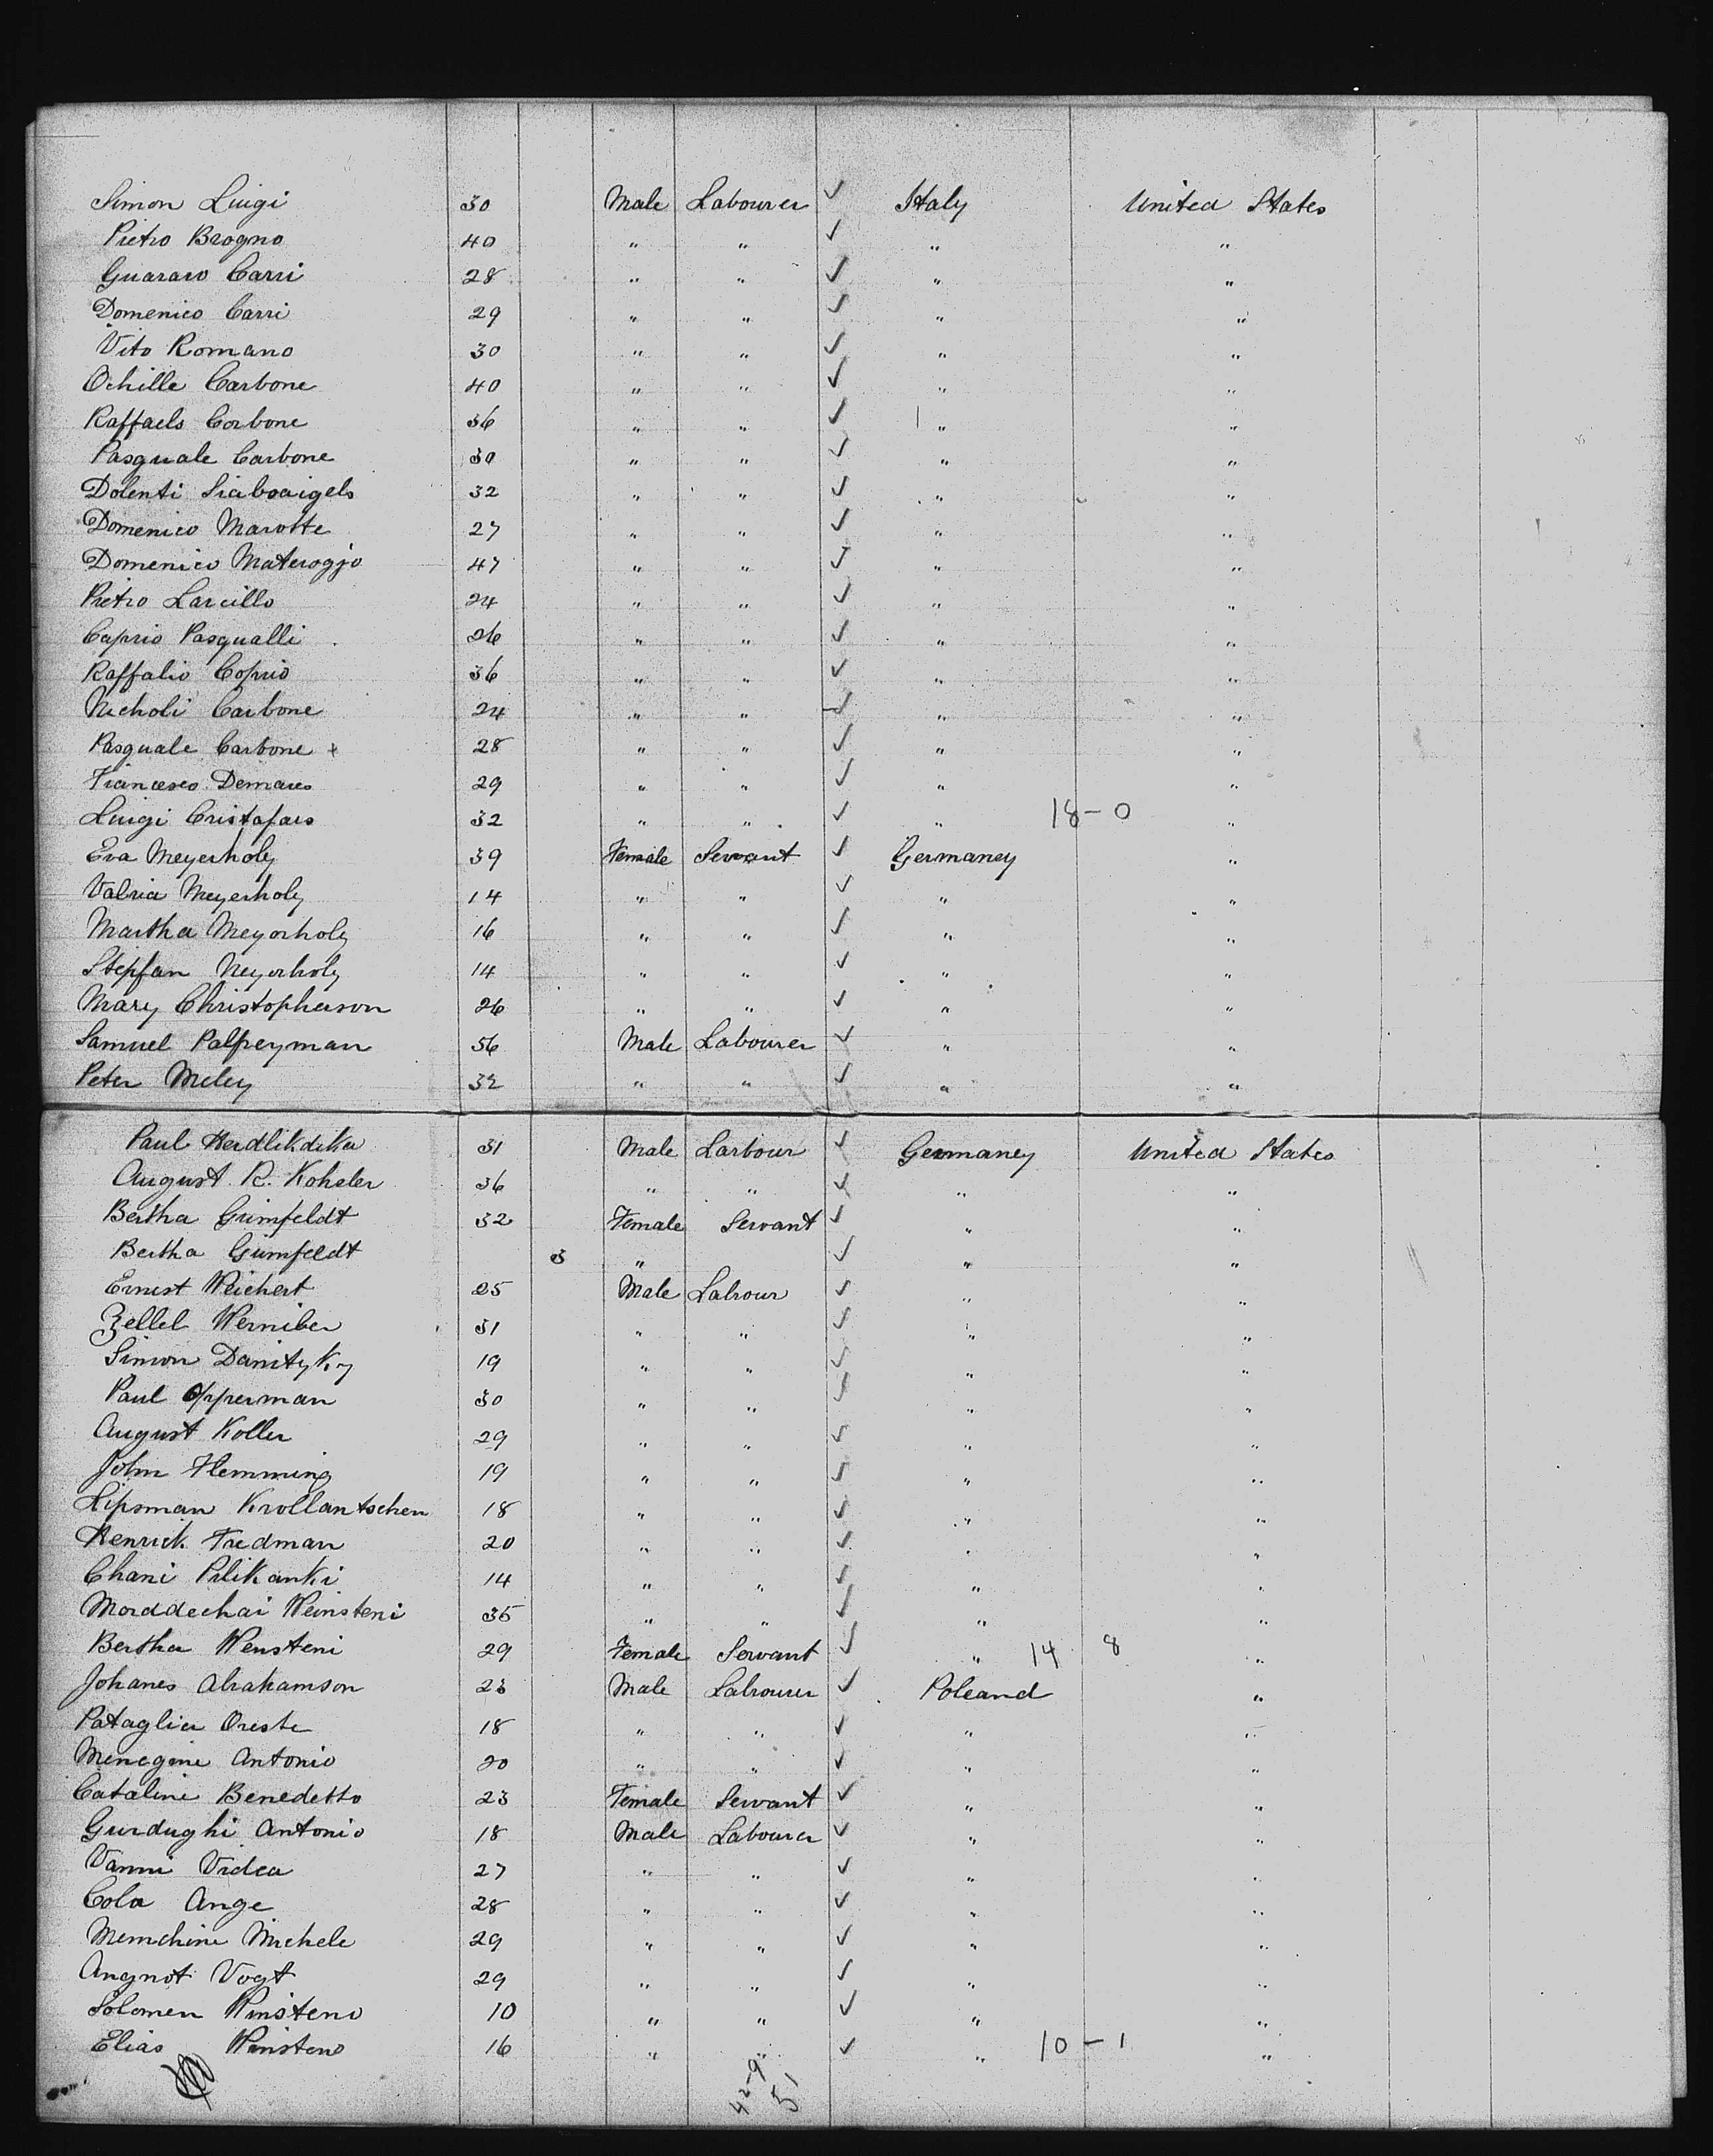 Simon Luigi 30 Male Labourer ✓ Italy United States
Pietro Brogno 40 " " ✓ " "
Guararo Carri 28 " " ✓ " "
Domenico Carri 29 " " ✓ " "
Vito Romano 30 " " ✓ " "
Ochille Carbone 40 " " ✓ " "
Raffaelo Corbone 36 " " ✓ " "
Pasquale Carbone 30 " " ✓ " "
Dolenti 32 " " ✓ " "
Domenico Marotte 27 " " ✓ " "
Domenico Materogjo 47 " " ✓ " "
Pietro Larcillo 24 " " ✓ " "
Caprio Pasqualli 26 " " ✓ " "
Raffalio Coprio 36 " " ✓ " "
Nicholi Carbone 24 " " ✓ " "
Pasquale Carbone x 28 " " ✓ " "
Francesco Demares 29 " " ✓ " "
Luigi Cristafaro 32 " " ✓ " 18-0 "
Eva Meyerholy 39 Female Servant ✓ Germaney "
Valria Meyerholy 14 " " ✓ " "
Martha Meyorholy 16 " " ✓ " "
Stepfan Meyorholy 14 " " ✓ " "
Mary Christopherson 26 " " ✓ " "
Samuel Palpeyman 56 Male Labourer ✓ " "
Peter Meley 32 " " ✓ " "
Paul Herdlikdika 31 Male Larbour ✓ Germaney United States
August R. Kohsler 36 " " ✓ " "
Bertha Grimfeldt 32 Female Servant ✓ " "
Bertha Grimfeldt 3 " ✓ " "
Ernest Weichert 25 Male Labrour ✓ " "
Zellel Werniber 31 " " ✓ " "
Simon Danityky 19 " " ✓ " "
Paul Opperman 30 " " ✓ " "
August Koller 29 " " ✓ " "
John Flemming 19 " " ✓ " "
Lipsman Krollantschen 18 " " ✓ " "
Henrick Fredman 20 " " ✓ " "
Chani Pilikanki 14 " " ✓ " "
Morddechai Weinsteni 35 " " ✓ " "
Bertha Wensteni 29 Female Servant ✓ " 14 8 "
Johanes Abrahamson 23 Male Labrourer ✓ Poleand "
Pataglia Oreste 18 " " ✓ " "
Menegine Antonio 20 " " ✓ " "
Cataline Benedetto 23 Female Servant ✓ " "
Gurdughi Antonio 18 Male Labourer ✓ " "
Vanni Videa 27 " " ✓ " "
Cola Ange 28 " " ✓ " "
Memchine Michele 29 " " ✓ " "
Angnot Vogt 29 " " ✓ " "
Solomen Winsteno 10 " " ✓ " "
Elias Winsteno 16 " " ✓ " 10-1 "
42-9
51